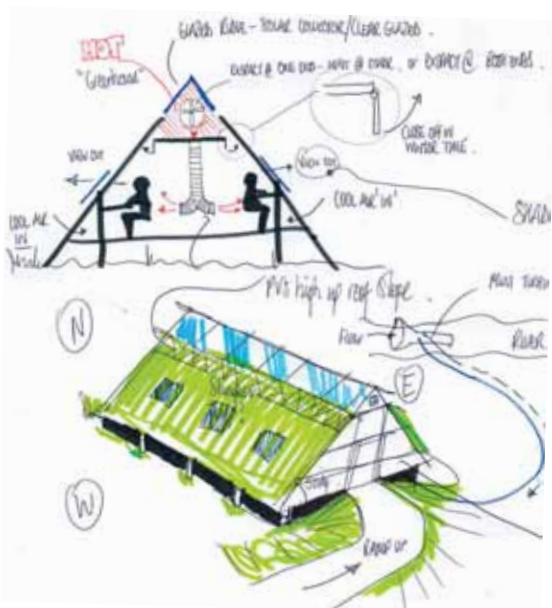 GLAZED RIDGE - SOLAR COLLECTOR/CLEAR GLAZED.
HOT
"Greenhouse"
EXTRACT @ ONE END - INLET @ OTHER, or EXTRACT @ BOTH ENDS.
CLOSE OFF IN
WINTER TIME.
VIEW OUT
VIEW OUT
COOL AIR
IN
COOL AIR 'IN'
SHAD
PV's high up roof slope.
MINI TURBIN
Flow
RIVER
N
E
W
RAMP UP